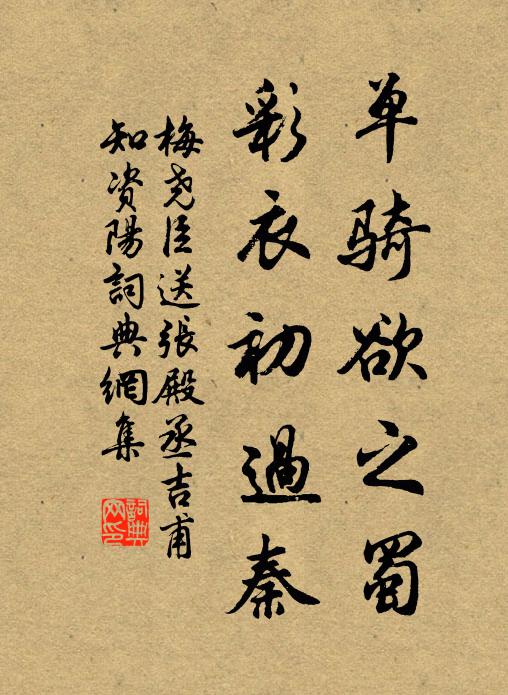 单骑欲之蜀
彩衣初過秦
梅尧臣送張殿丞吉甫
知资陽詞典網集
詞典网印